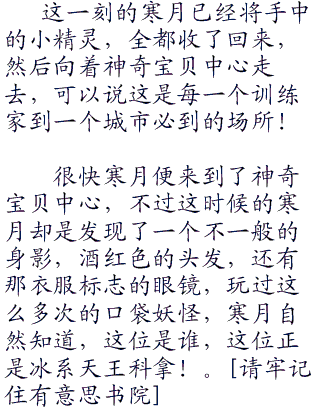 这一刻的寒月已经将手中
的小精灵，全都收了回来，
然后向着神奇宝贝中心走
去，可以说这是每一个训练
家到一个城市必到的场所！
很快寒月便来到了神奇
宝贝中心，不过这时候的寒
月却是发现了一个不一般的
身影，酒红色的头发，还有
那衣服标志的眼镜，玩过这
么多次的口袋妖怪，寒月自
然知道，这位是谁，这位正
是冰系天王科拿！。[请牢记
住有意思书院]